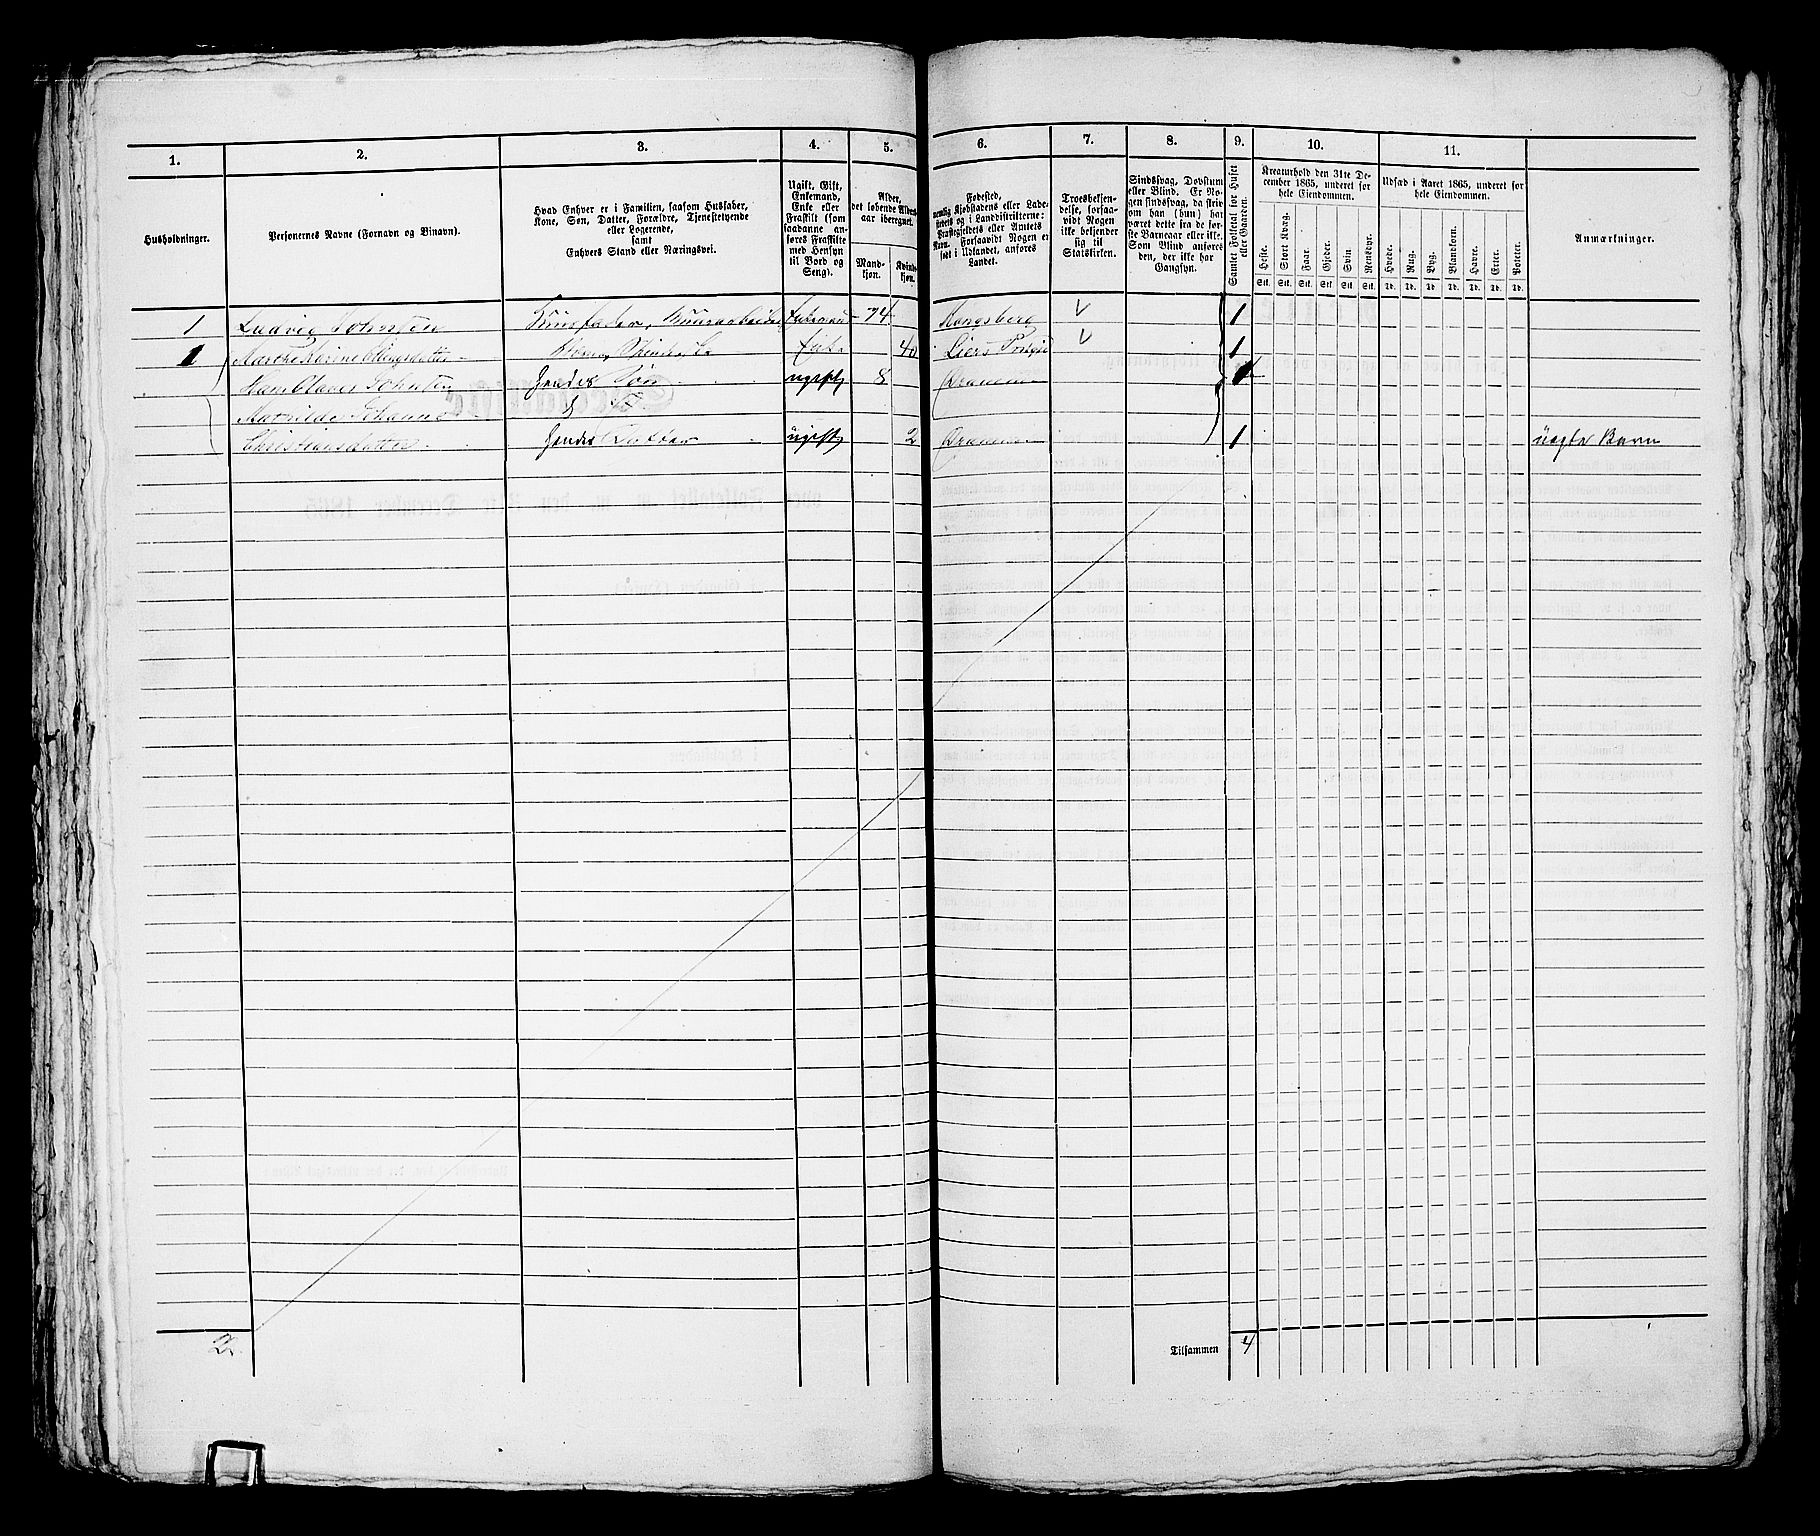 1. 2. 3. 4. 5. 6. 7. 8. 9. 10. 11.
Husholdninger.
Personernes Navne (Fornavn og Binavn).
Hvad Enhver er i Familien, saasom Husfader,
Kone, Søn, Datter, Forældre, Tjenestetyende
eller Logerende,
samt
Enhvers Stand eller Næringsvei.
Ugift, Gift,
Enkemand,
Enke eller
Fraskilt (som
saadanne an-
føres Fraskilte
med Hensyn
til Bord og
Seng).
Alder,
det løbende Alders-
aar iberegnet.
Mand-
kjøn.
Kvinde-
kjøn.
Fødested,
nemlig Kjøbstadens eller Lade-
stedets og i Landdistrikterne:
Præstegjeldets eller Amtets
Navn. Forsaavidt Nogen er
født i Udlandet, anføres
Landet.
Troesbekjen-
delse, forsaa-
vidt Nogen
ikke bekjender
sig til
Statskirken.
Sindssvag, Døvstum
eller Blind. Er No-
gen sindssvag, da skriv
om han (hun) har
været dette fra de før-
ste Barneaar eller ikke.
Som Blind anføres
den, der ikke har
Gangsyn.
Samlet Folketal for Huset
eller Gaarden.
Kreaturhold den 31te De-
cember 1865, underet for
hele Eiendommen.
Heste. Stort Kvæg. Faar. Gjeder. Svin Rensdyr.
Stk. Stk. Stk. Stk. Stk. Stk.
Udsæd i Aaret 1865, underet for
hele Eiendommen.
Hvede. Rug. Byg. Blandkorn. Havre. Erter. Poteter.
Td. Td. Td. Td. Td. Td. Td.
Anmærkninger.
1 Ludvig Johnsen Huusfader, 74 Kongsberg 1
1 Marthe Karine 40 Liers 1
Hans Johnsen Hendes Søn ugift 8 Drammen
Mathilde Johanne
Christiansdatter Hendes Datter ugift 2 Drammen 1 uægte Barn
2 Tilsammen 4